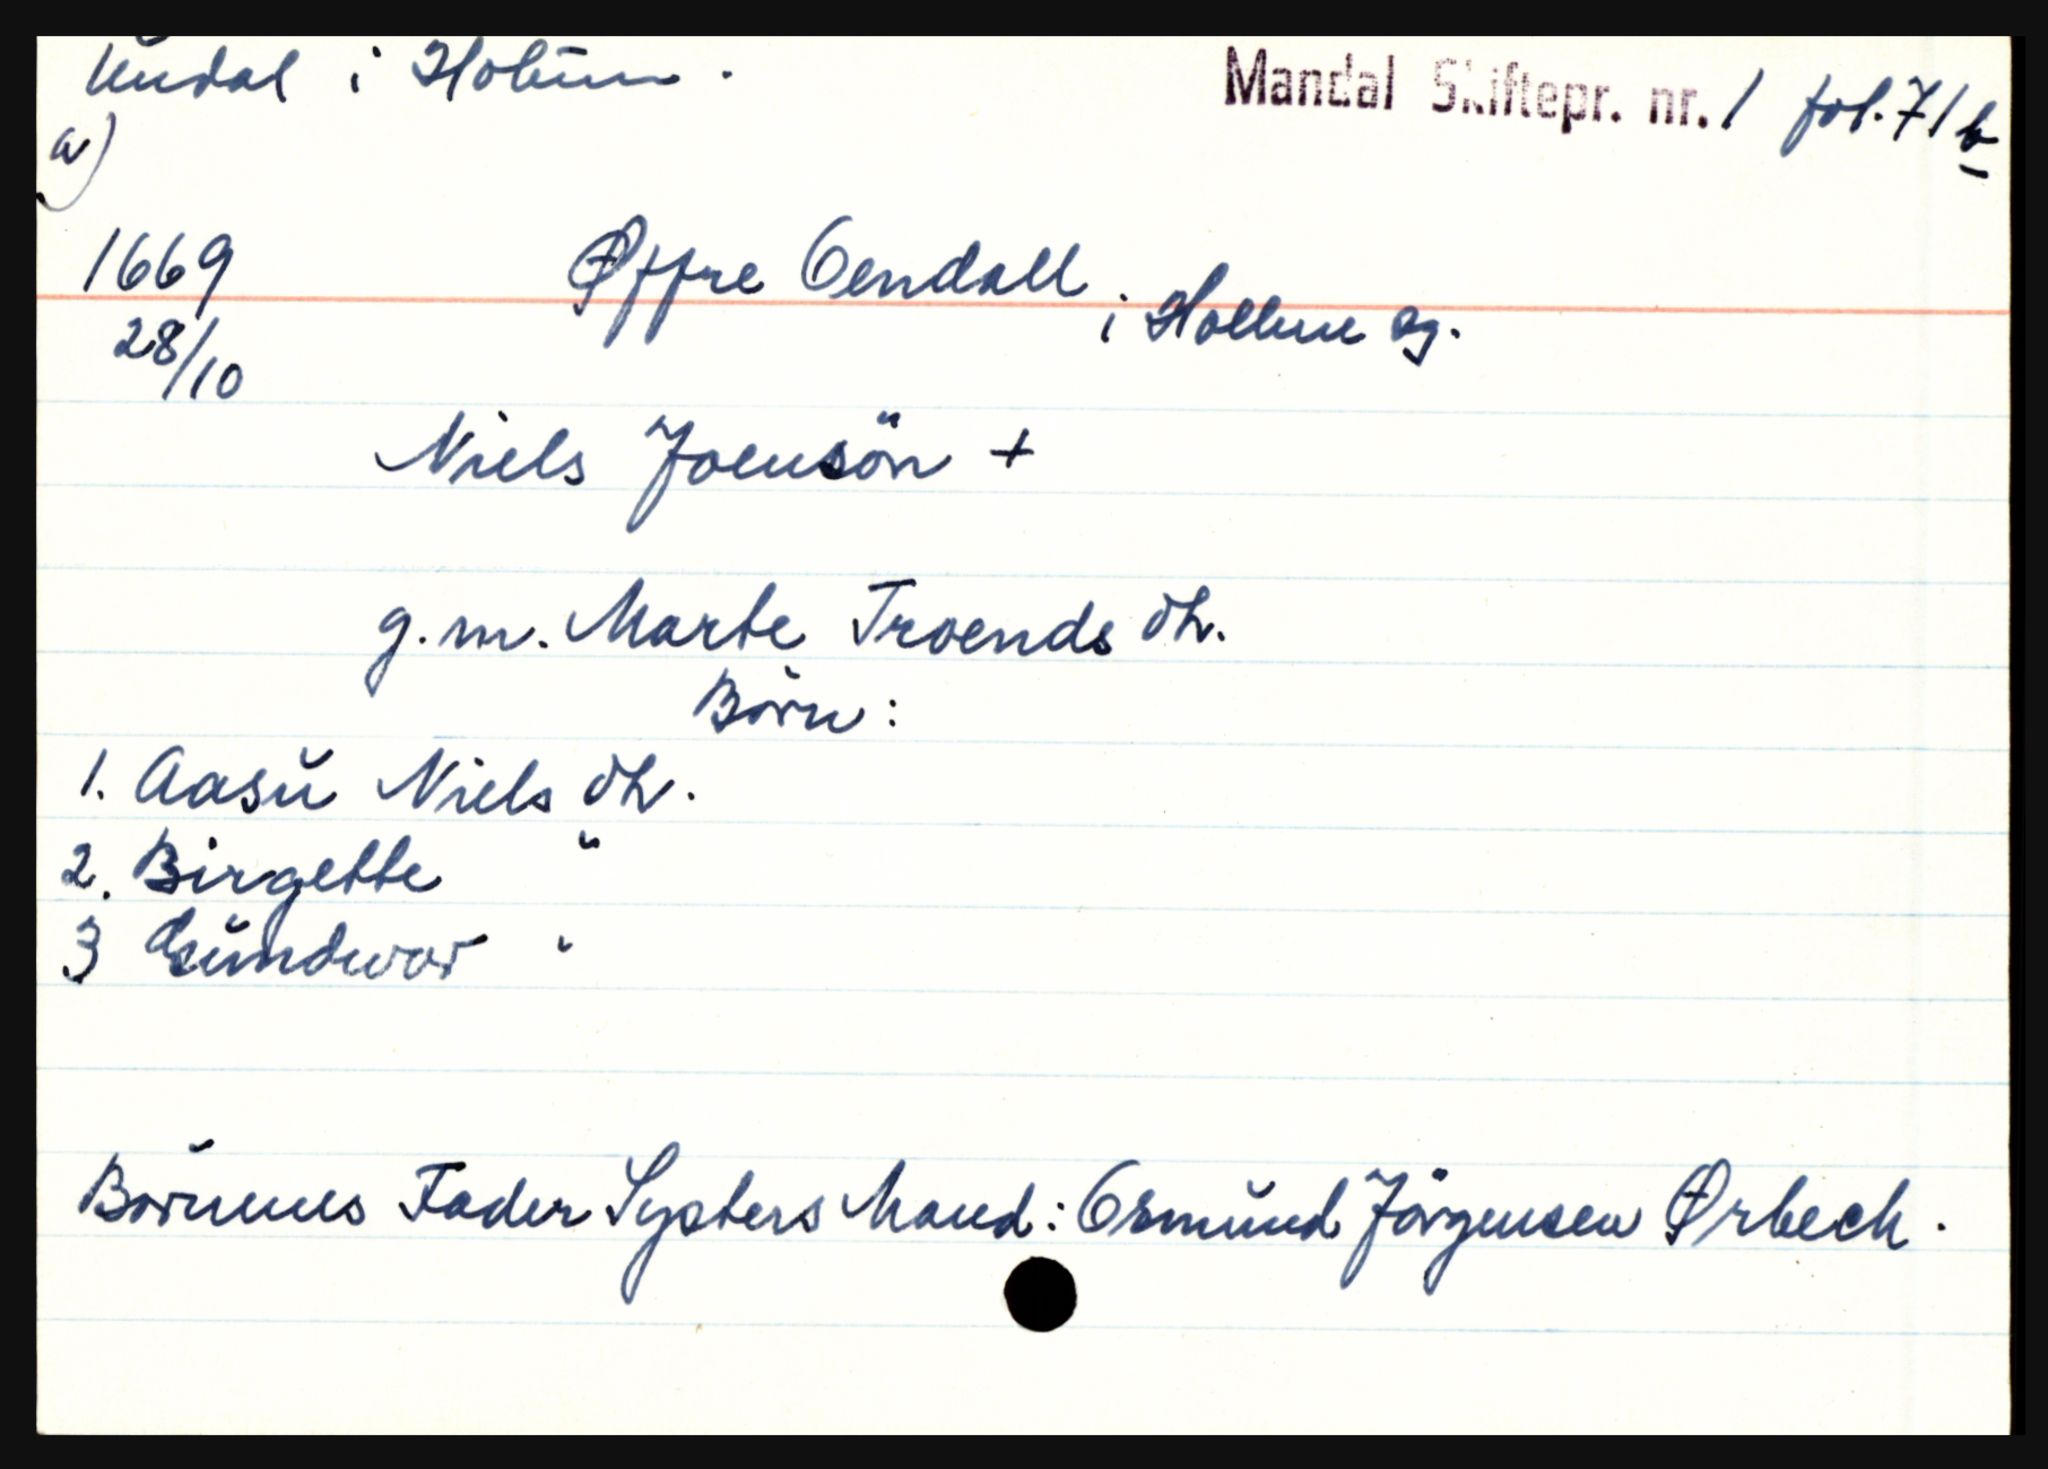 Undal i Holum.
Mandal Skiftepr. nr. 1 fol. 71 b
a)
1669 Øffre Oendall i Hollum sg.
28/10
Niels Joensön +
g.m. Marte Troends dtr.
Börn:
1. Aasŭ Niels dtr.
2. Birgette "
3 Gŭndwor "
Börnenes Fader Systers Mand: Osmŭnd Jörgensen Ørbech.